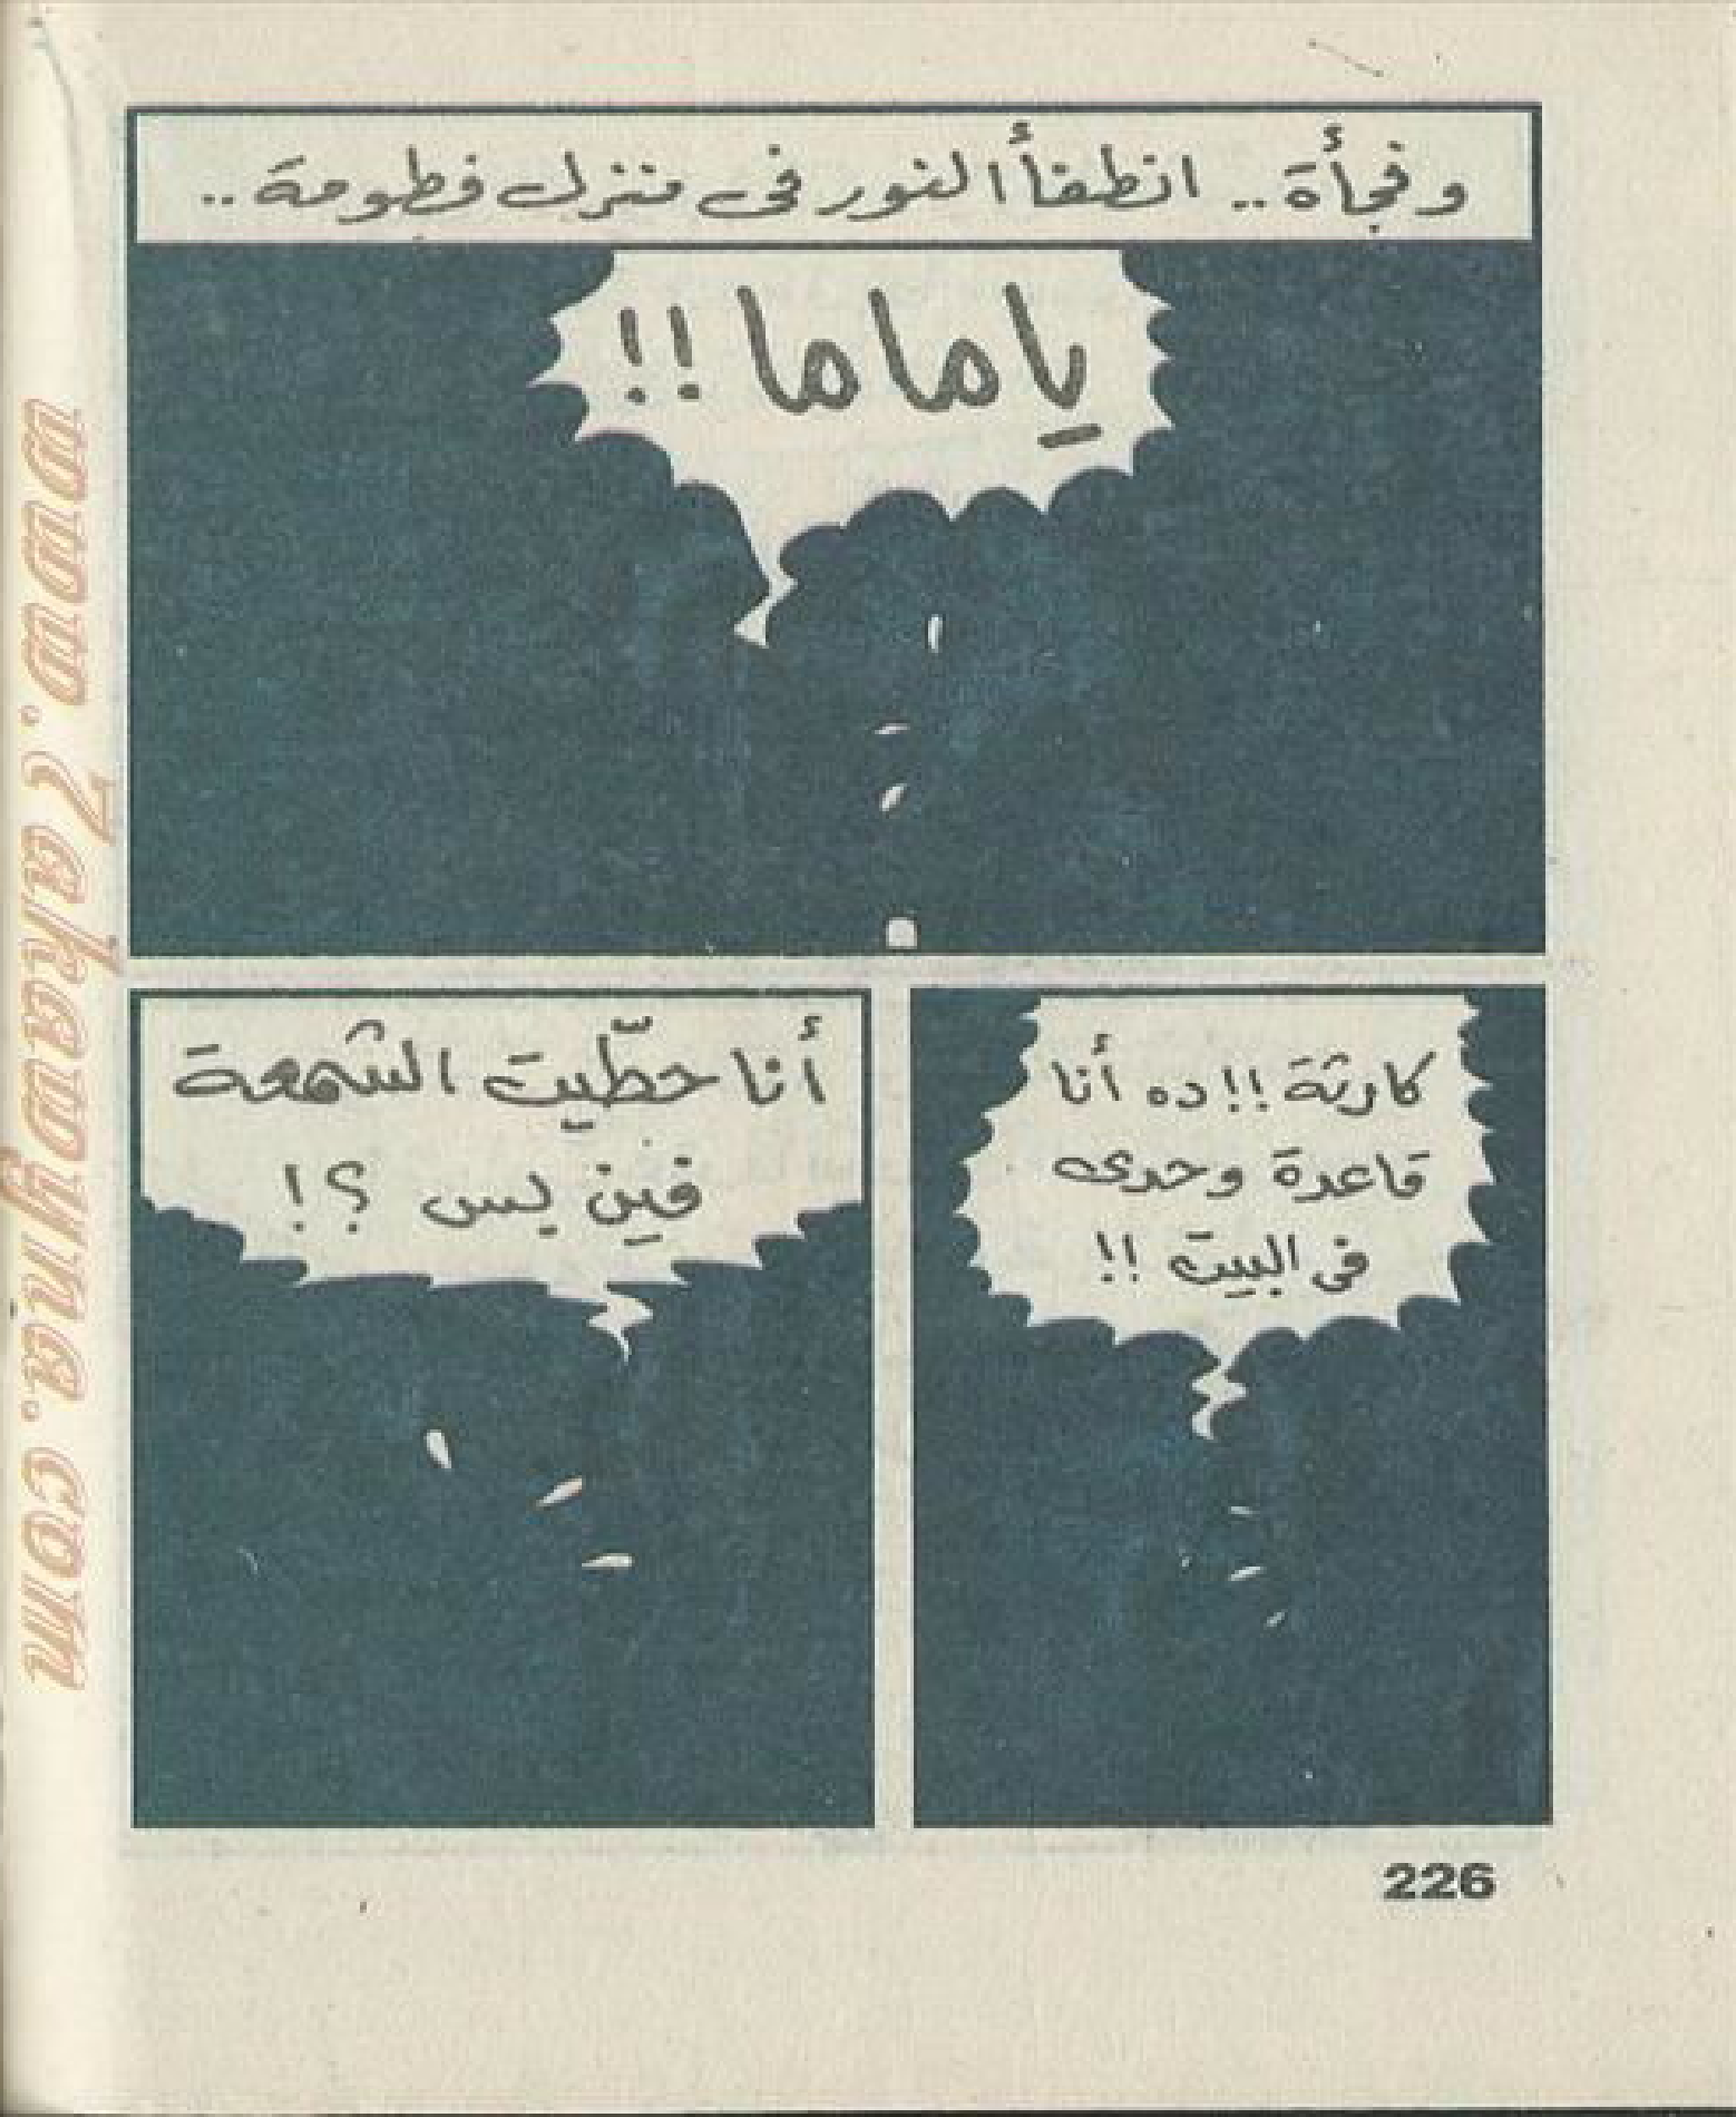 وفجأة.. انطفأ النور فى منزل فطومة..
ياماما!!
كارثة!! ده أنا
قاعدة وحدى
فى البيت!!
أنا حطّيت الشمعة
فين بس ؟!
226
www.7akawyuna.com